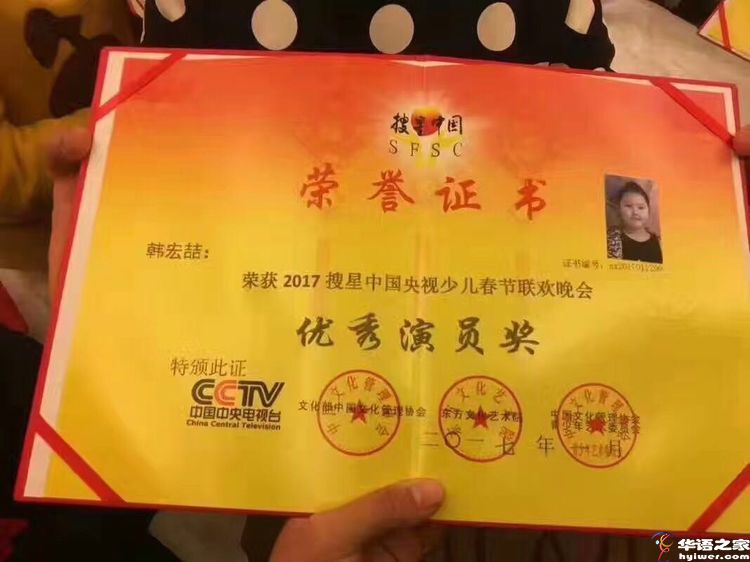 搜星中国
SFSC
荣誉证书
证书编号:
韩宏喆:
荣获 2017 搜星中国央视少儿春节联欢晚会
优秀演员奖
特颁此证
CCTV
中国中央电视台
China Central Television
文化部中国文化管理协会
东方文化艺术院
二〇一七年 月
华语之家
hyiwer.com